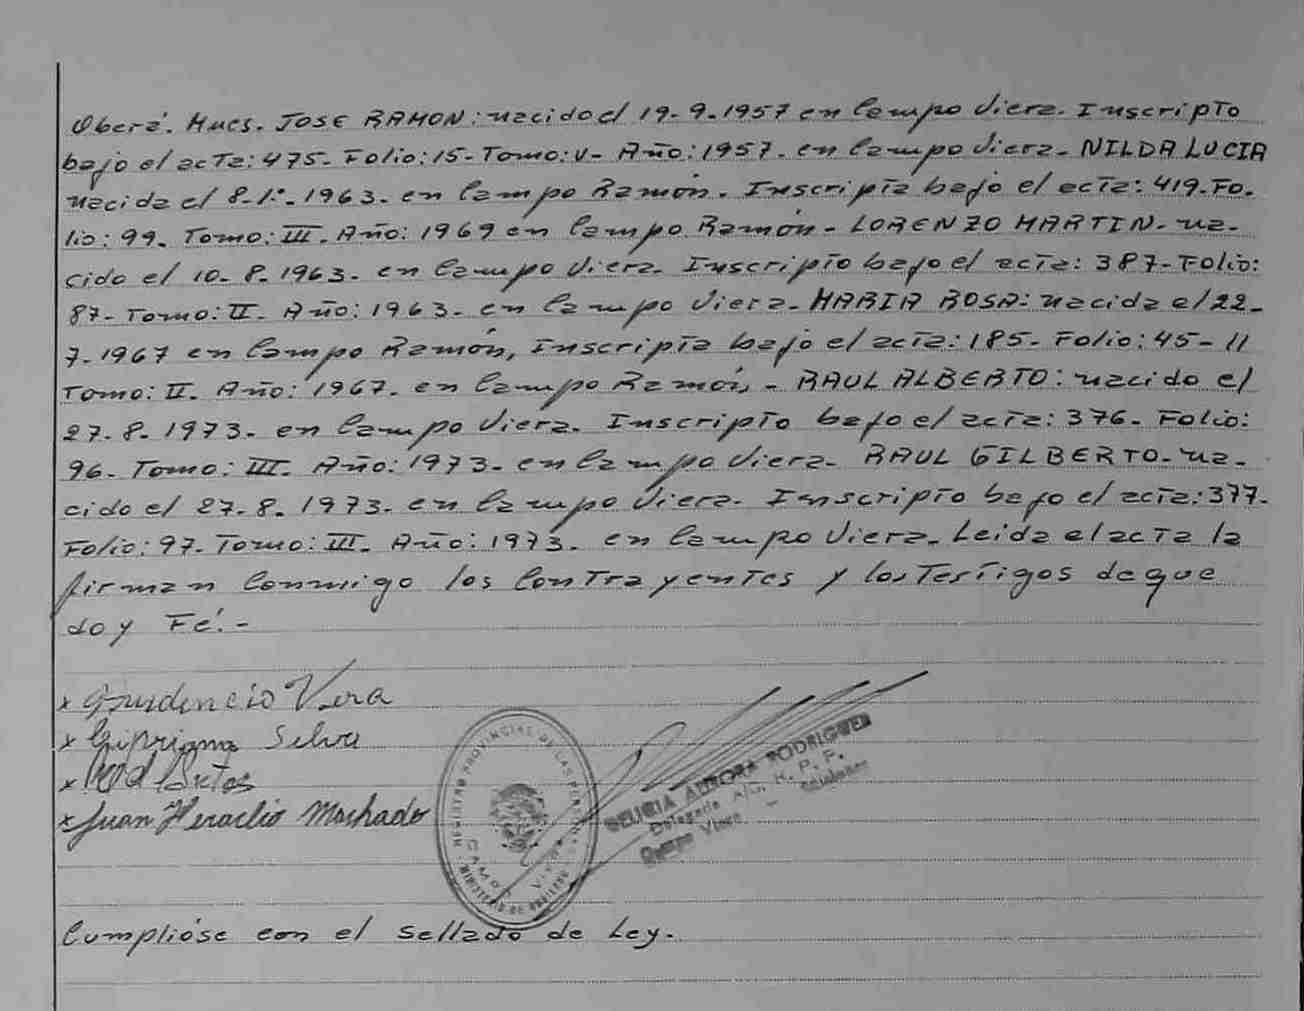 Oberá. Mnes. JOSE RAMON: nacido el 19-9-1957 en Campo Viera. Inscripto
bajo el acta: 475- Folio: 15- Tomo: V- Año: 1957. en Campo Viera- NILDA LUCIA
nacida el 8-1º-1963- en Campo Ramón. Inscripta bajo el acta: 419- Fo-
lio: 99. Tomo: III. Año: 1969 en Campo Ramón- LORENZO MARTIN- na-
cido el 10-8-1963- en Campo Viera. Inscripto bajo el acta: 387- Folio:
87- Tomo: II. Año: 1963- en Campo Viera- MARIA ROSA: nacida el 22-
7-1967 en Campo Ramón, Inscripta bajo el acta: 185- Folio: 45- 11
Tomo: II. Año: 1967. en Campo Ramón- RAUL ALBERTO: nacido el
27-8-1973- en Campo Viera. Inscripto bajo el acta: 376- Folio:
96- Tomo: III. Año: 1973- en Campo Viera- RAUL GILBERTO- na-
cido el 27-8-1973- en Campo Viera. Inscripto bajo el acta: 377-
Folio: 97- Tomo: III- Año: 1973- en Campo Viera- Leida el acta la
firman Conmigo los Contrayentes y los Testigos de que
doy Fé.-
x Prudencio Vera
x Cipriana Silva
x
x Juan Heraclio Machado
REGISTRO PROVINCIAL DE LAS PERSONAS
CAMPO VIERA
MINISTERIO DE GOBIERNO
DELICIA AURORA RODRIGUEZ
Delegada A/C. R. P. P.
Campo Viera - Misiones
Cumplióse con el sellado de Ley.